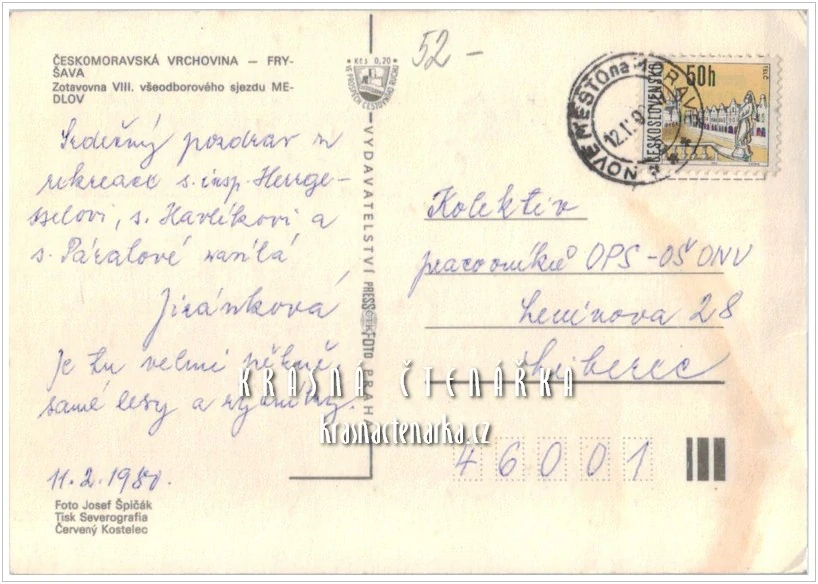 ČESKOMORAVSKÁ VRCHOVINA — FRY-
ŠAVA
Zotavovna VIII. všeodborového sjezdu ME-
DLOV
Srdečný pozdrav z
rekreace s. insp. Herrge-
sselovi, s. Havlíkovi a
s. Páralové zasílá
Jiránková
Je tu velmi pěkně,
samé lesy a rybníky.
11.2.1980.
Foto Josef Špičák
Tisk Severografia
Červený Kostelec
Kčs 0,20
VE PROSPĚCH CESTOVNÍHO RUCHU
VYDAVATELSTVÍ PRESSFOTO PRAHA
52,-
NOVÉ MĚSTO na MORAVĚ
12.
50h
ČESKOSLOVENSKO
TELČ
Kolektiv
pracovníků OPS-OŠ ONV
Leninova 28
Liberec
46001
KRÁSNÁ ČTENÁŘKA
Krasnactenarka.cz